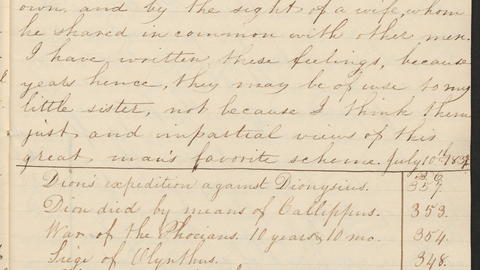 own, and by the sight of a wife whom
he shared in common with other men.
I have written these feelings, because
years hence, they may be of use to my
little sister, not because I think them
just and impartial views of this
great man's favorite scheme. July 10th
Dion's expedition against Dionysius. 357.
Dion died by means of Callippus. 353.
War of the Phocians. 10 years, 10 mo. 354.
Siege of Olynthus. 348.